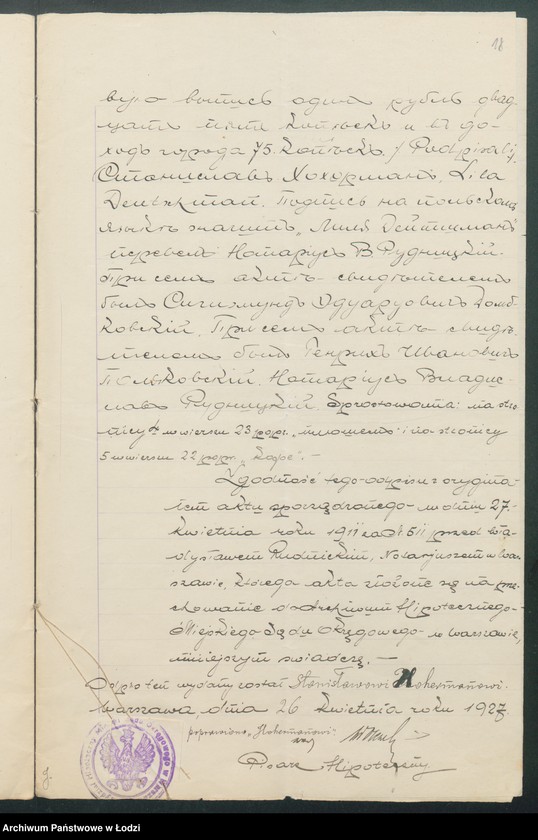 18
одинъ рубль двад
цать пять копѣекъ и въ до-
ходъ города 75. копѣекъ. / Podpisali /
Станиславъ Хохерманъ, Lila
Подпись на польскомъ
языкѣ значитъ „
перевелъ Нотаріусъ В. Рудницкій.
При семъ актѣ свидѣтелемъ
былъ Сигизмундъ Эдуардовичъ Домб-
ковскій. При семъ актѣ свидѣ-
телемъ былъ Генрихъ Ивановичъ
Польковскій. Нотаріусъ Владис-
лавъ Рудницкій. Sprostowania: na stro
nicy w wierszu 23 popr. i na stronicy
5 w wierszu 22 popr. „kope“. —
Zgodność tego odpisu z orygina-
łem aktu sporządzonego w dniu 27
kwietnia roku 1911 za № 511 przed Wła-
dysławem Rudnickim, Notarjuszem w War-
szawie, którego akta złożone są na prze-
chowanie do Archiwum Hipotecznego
Miejskiego Sądu Okręgowego w Warszawie,
niniejszym świadczę. —
Odpis ten wydany został Stanisławowi Hohermanowi.
Warszawa, dnia 26 kwietnia roku 1927.
poprawiono „Hohermanowi“
Pisarz Hipoteczny
Archiwum Państwowe w Łodzi